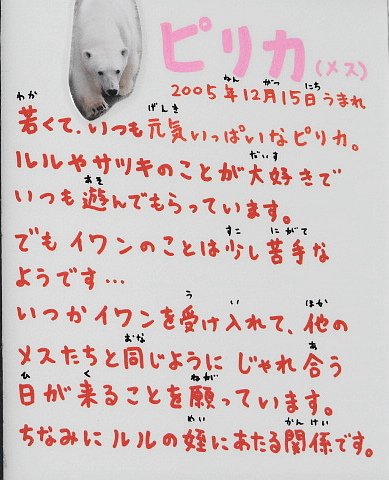 ピリカ(メス)
2005年12月15日うまれ
若くて、いつも元気いっぱいなピリカ。
ルルやサツキのことが大好きで
いつも遊んでもらっています。
でもイワンのことは少し苦手な
ようです…
いつかイワンを受け入れて、他の
メスたちと同じようにじゃれ合う
日が来ることを願っています。
ちなみにルルの姪にあたる関係です。